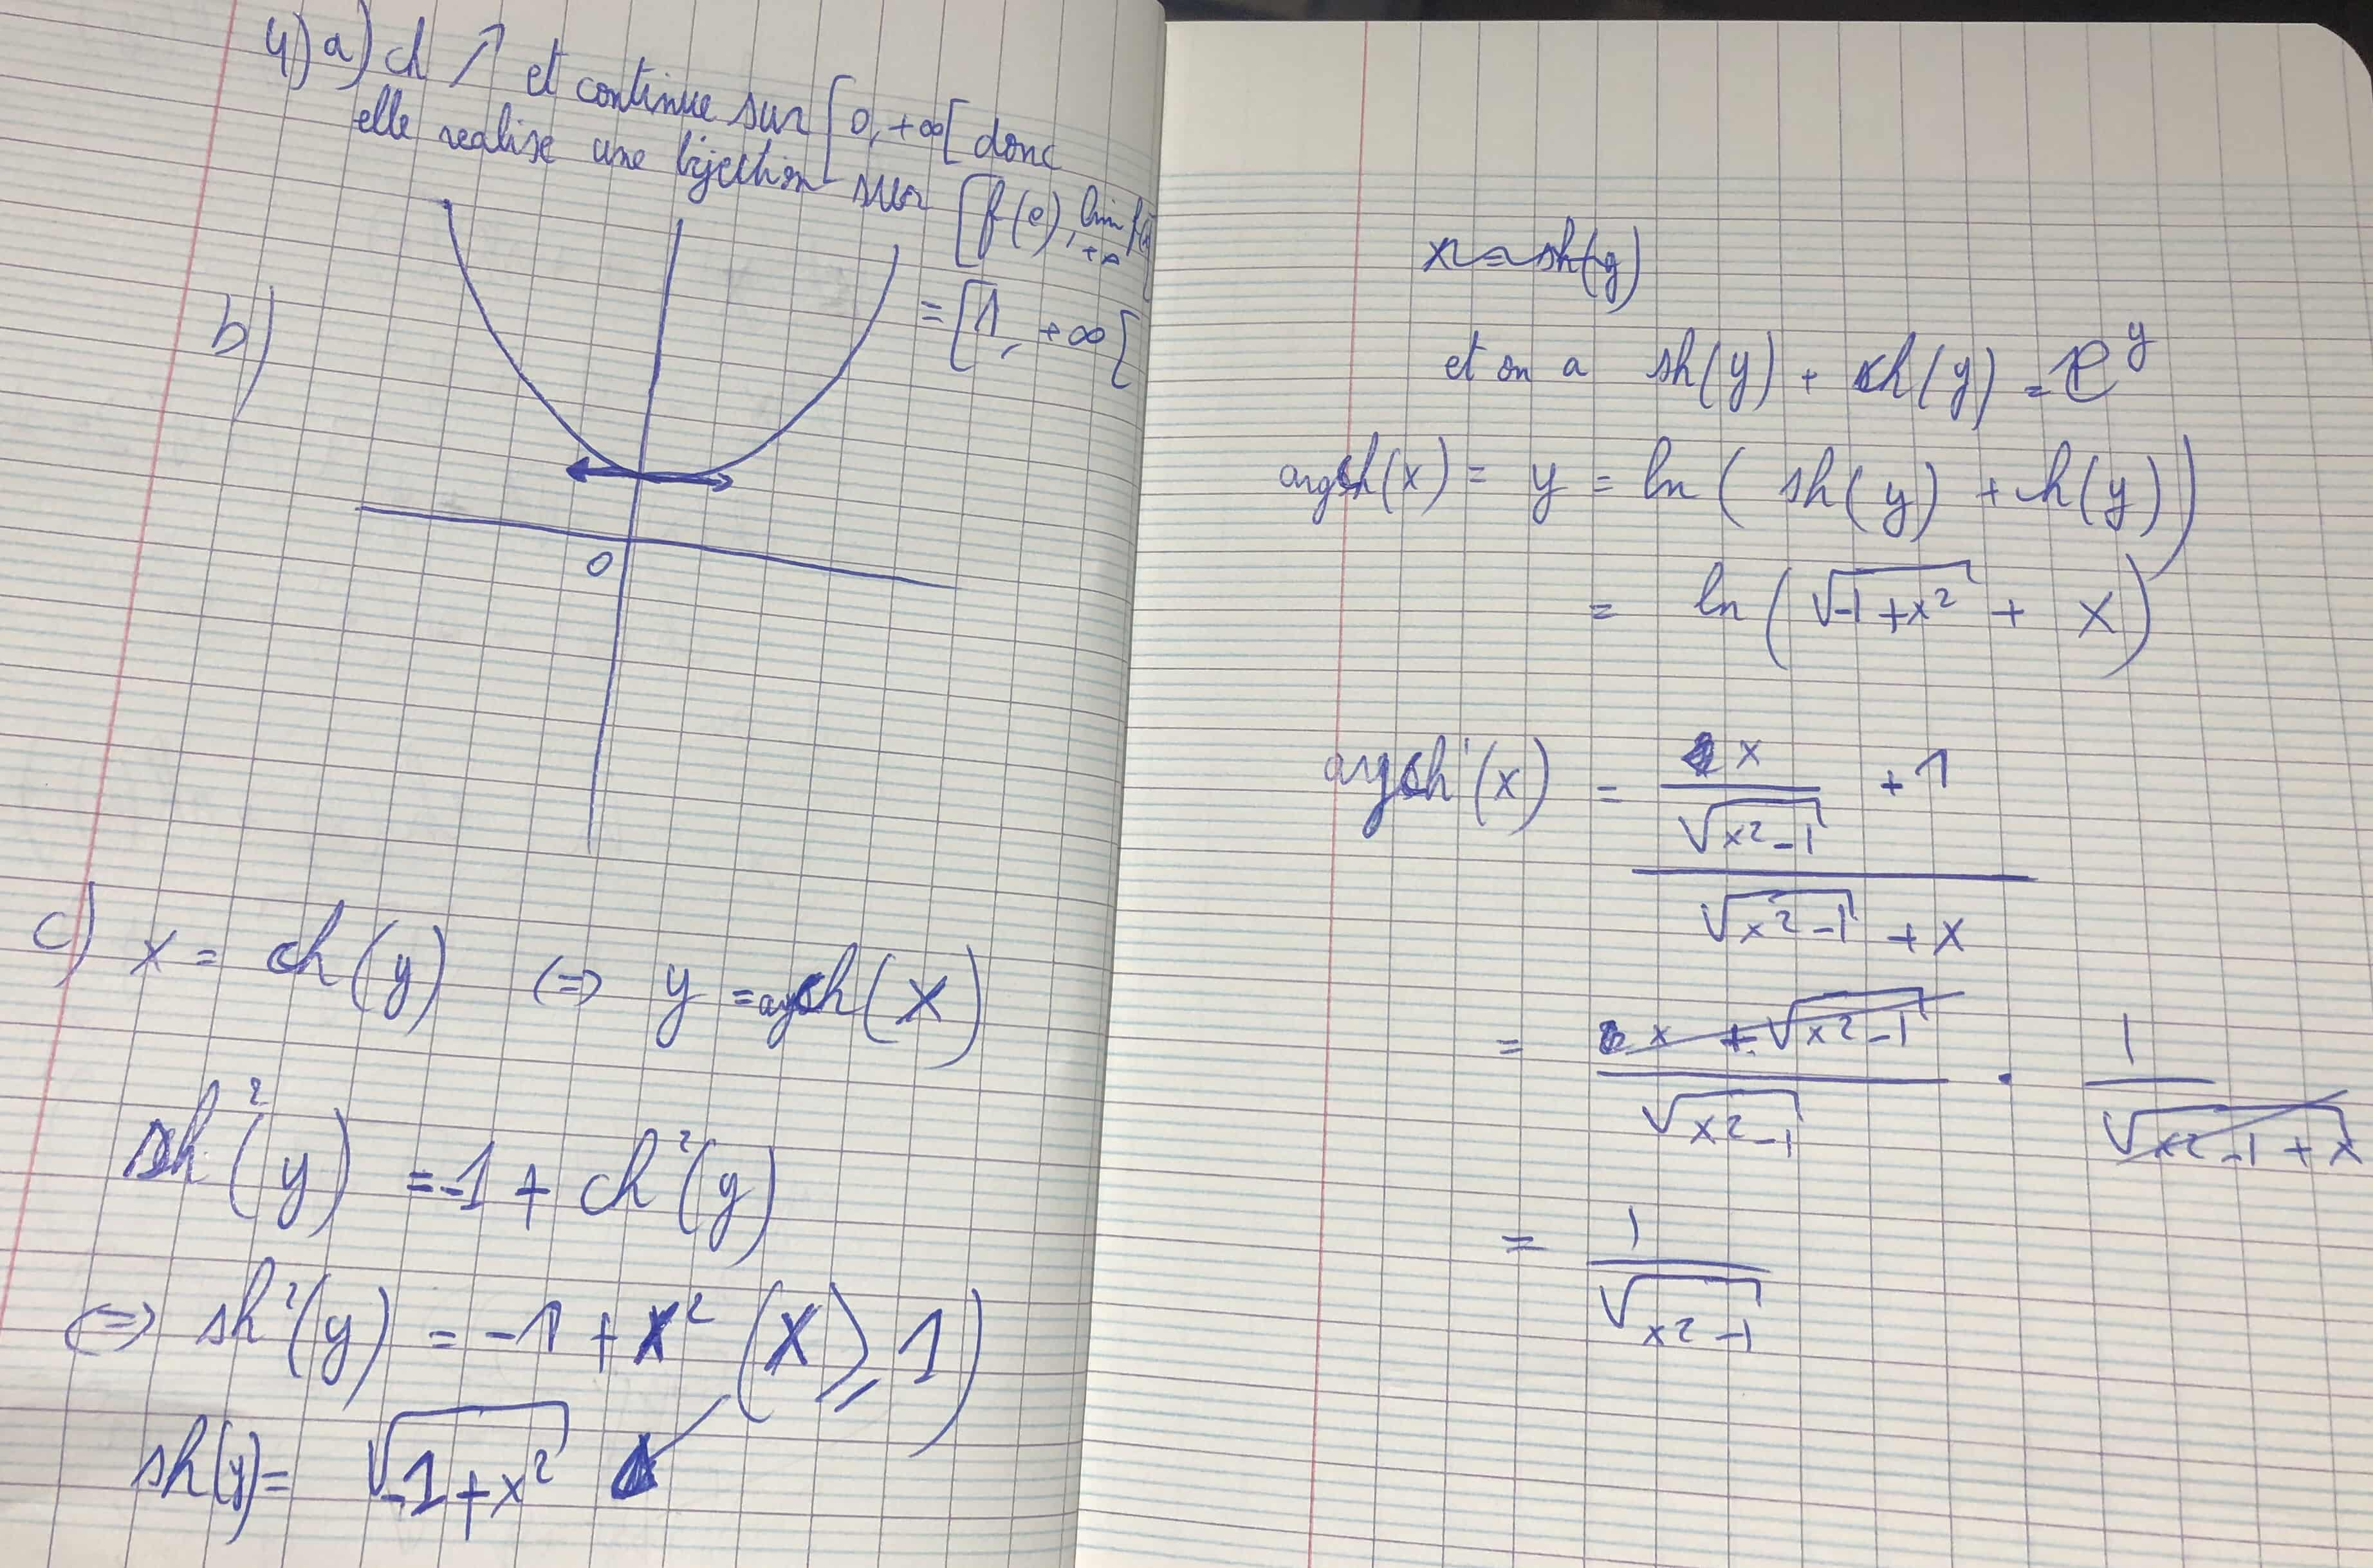 4) a) ch ↗ et continue sur [0, +∞[ donc
elle realise une bijection sur [f(0), lim f(x)[
+∞
= [1, +∞[
b)
0
c) x = ch(y) (=) y = argch(x)
sh²(y) = -1 + ch²(y)
(=) sh²(y) = -1 + x² (x ≥ 1)
sh(y) = √(-1 + x²)
x = sh(y)
et on a sh(y) + ch(y) = e^y
argch(x) = y = ln( sh(y) + h(y))
= ln(√(-1 + x²) + x)
argch'(x) = (x/√(x²-1) + 1) / (√(x²-1) + x)
= (x + √(x²-1)) / √(x²-1) · 1 / √(x²-1 + x)
= 1/√(x²-1)